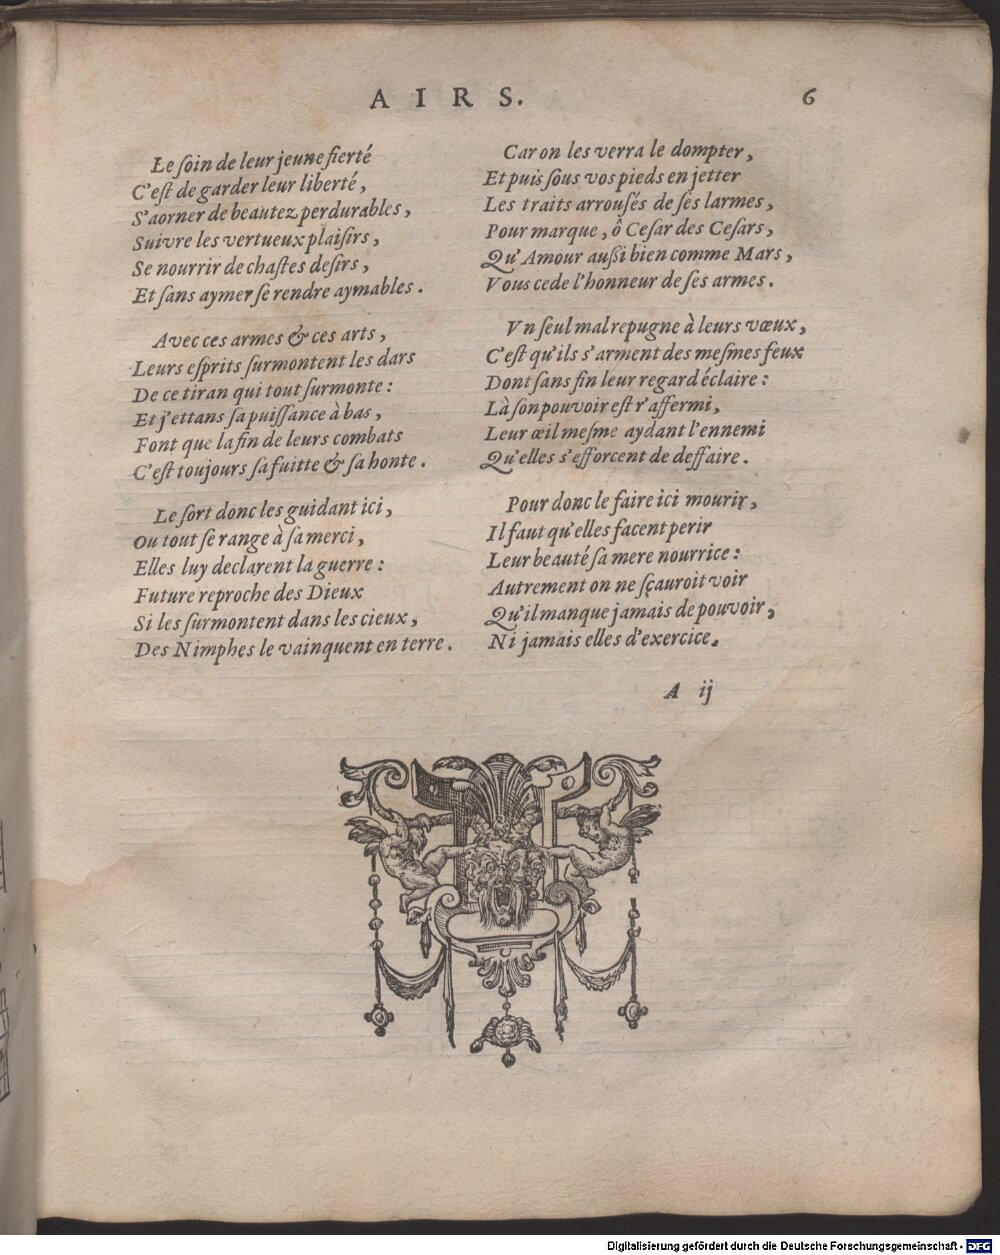 AIRS. 6
Le ſoin de leur jeune fierté
C'eſt de garder leur liberté,
S'aorner de beautez perdurables,
Suivre les vertueux plaiſirs,
Se nourrir de chaſtes deſirs,
Et ſans aymer ſe rendre aymables.
Avec ces armes & ces arts,
Leurs eſprits ſurmontent les dars
De ce tiran qui tout ſurmonte:
Et j'ettans ſa puiſſance à bas,
Font que la fin de leurs combats
C'eſt toujours ſa fuitte & ſa honte.
Le ſort donc les guidant ici,
Ou tout ſe range à ſa merci,
Elles luy declarent la guerre:
Future reproche des Dieux
Si les ſurmontent dans les cieux,
Des Nimphes le vainquent en terre.
Car on les verra le dompter,
Et puis ſous vos pieds en jetter
Les traits arrouſés de ſes larmes,
Pour marque, ô Ceſar des Ceſars,
Qu'Amour auſſi bien comme Mars,
Vous cede l'honneur de ſes armes.
Vn ſeul mal repugne à leurs vœux,
C'eſt qu'ils s'arment des meſmes feux
Dont ſans fin leur regard éclaire:
Là ſon pouvoir eſt r'affermi,
Leur œil meſme aydant l'ennemi
Qu'elles s'efforcent de deffaire.
Pour donc le faire ici mourir,
Il faut qu'elles facent perir
Leur beauté ſa mere nourrice:
Autrement on ne ſçauroit voir
Qu'il manque jamais de pouvoir,
Ni jamais elles d'exercice.
A ij
Digitalisierung gefördert durch die Deutsche Forschungsgemeinschaft - DFG